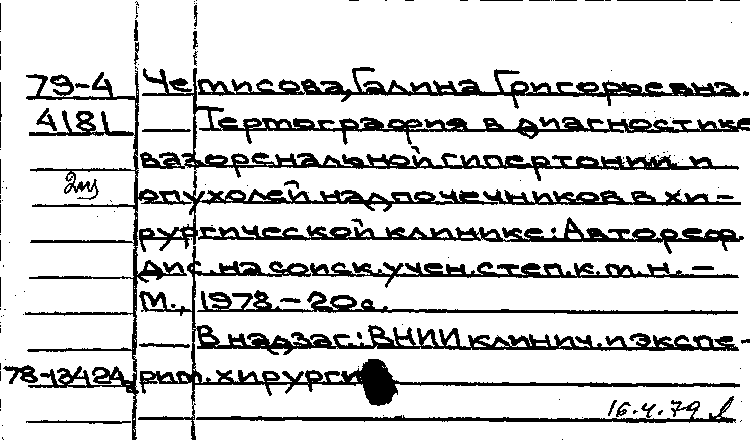 79-4 Четисова, Галина Григорьевна.
4181 Термография в диагностике
вазоренальной гипертонии и
2мз опухолей надпочечников в хи-
рургической клинике: Автореф.
дис. на соиск. учен. степ. к.м.н. -
М., 1978. - 20 с.
В надзаг.: ВНИИ клинич. и экспе-
78-13424а рим. хирургии
16.4.79